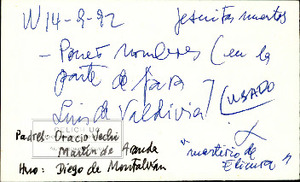 W 14-9-92 Jesuitas muertos
- Poner nombres (en la
parte de
Luis de Valdivia) USADO
Padre: Oracio Vechi
Martín de Aranda
Hno: Diego de Montalván
"martirio de
Elicura"